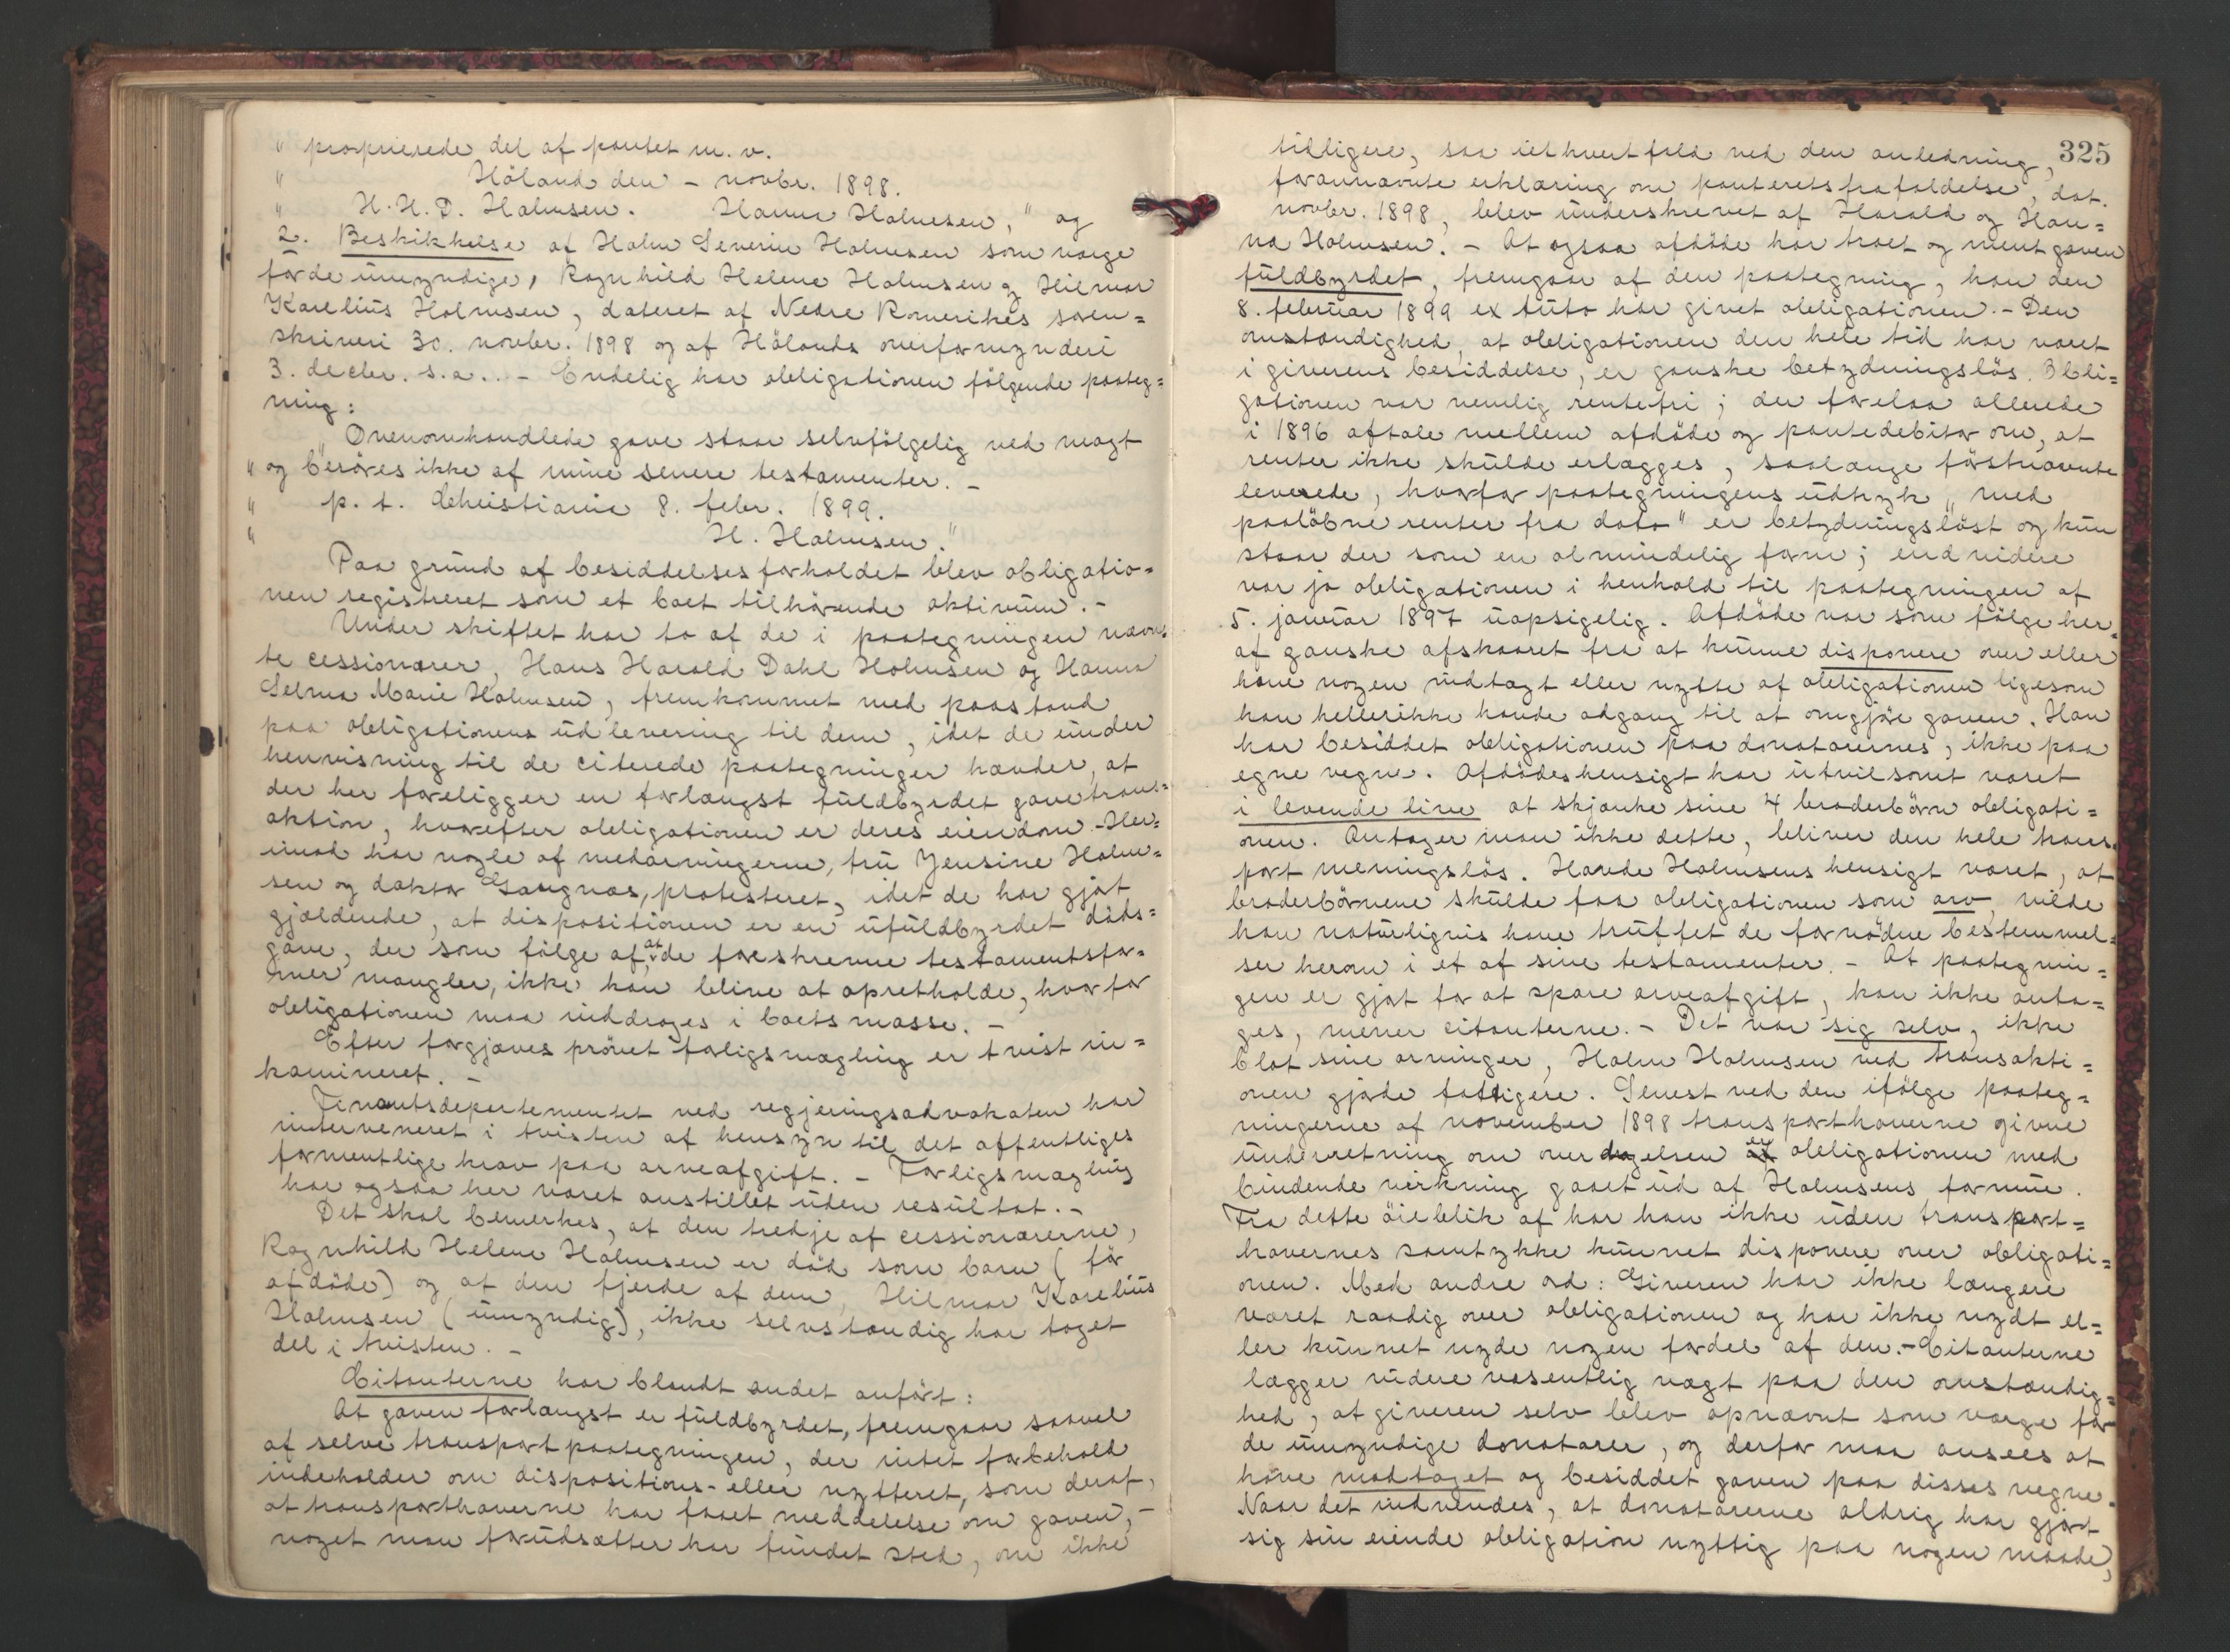 " proprierede del af pantet m. v.
" Höland den – novbr. 1898.
" H. H. D. Holmsen. Hanna Holmesen," og
2. Beskikkelse af Holm Severin Holmsen som verge
for de umyndige, Ragnhild Helene Holmsen og Hilmar
Karelius Holmsen, dateret af Nedre Romerikes soren=
skriveri 30. novbr. 1898 og af Hölands overformynderi
3. decbr. s.a.. – Endelig har obligationen fölgende paateg=
ning:
" Ovenomhandlede gave staar selvfölgelig ved magt
" og beröres ikke af mine senere testamenter. –
" p. t. Christiania 8. febr. 1899.
" H. Holmsen."
Paa grund af besiddelsesforholdet blev obligatio=
nen registreret som et boet tilhörende aktivum. –
Under skiftet har to af de i paategningen nævn=
te cessionarer, Hans Harald Dahl Holmsen og Hanna
Selma Marie Holmsen, fremkommet med paastand
paa obligationens udlevering til dem, idet de under
henvisning til de citerede paategninger hævder, at
der her foreligger en forlængst fuldbyrdet gavetrans=
aktion, hvorefter obligationen er deres eiendom. – Her=
imod har nogle af medarvingerne, fru Jensine Holm=
sen og doktor Gangnæs, protesteret, idet de har gjort
gjældende, at dispositionen er en ufuldbyrdet döds=
gave, der som fölge af, at de foreskrevne testamentsfor=
mer mangler, ikke kan blive at opretholde, hvorfor
obligationen maa inddrages i boets masse. –
Efter forgjæves prövet forligsmægling er tvist in=
kamineret. –
Finantsdepartementet ved regjeringsadvokaten har
interveneret i tvisten af hensyn til det offentliges
formentlige krav paa arveafgift. – Forligsmægling
har ogsaa her været anstillet uden resultat. –
Det skal bemerkes, at den tredje af cessionarerne,
Ragnhild Helene Holmsen er död som barn (för
afdöde) og at den fjerde af dem, Hilmar Karelius
Holmsen (umyndig), ikke selvstændig har taget
del i tvisten. –
Citanterne har blandt andet anfört:
At gaven forlængst er fuldbyrdet, fremgaar saavel
af selve transportpaategningen, der intet forbehold
indeholder om dispositions- eller nytteret, som deraf,
at transporthaverne har faaet meddelelse om gaven, –
noget man forudsætter har fundet sted, om ikke
325
tidligere, saa iethvertfald ved den anledning,
forannævnte erklæring om panteretsfrafaldelse, dat.
novbr. 1898, blev underskrevet af Harald og Han=
na Holmsen. – At ogsaa afdöde har troet og ment gaven
fuldbyrdet, fremgaar af den paategning, han den
8. februar 1899 ex tuto har givet obligationen. – Den
omstændighed, at obligationen den hele tid har været
i giverens besiddelse, er ganske betydningslös. Obli=
gationen var nemlig rentefri; der forelaa allerede
i 1896 aftale mellem afdöde og pantedebitor om, at
renter ikke skulde erlægges, saalænge förstnævnte
levede, hvorfor paategningens udtryk "med
paalöbne renter fra dato" er betydningslöst og kun
staar der som en almindelig form; end videre
var jo obligationen i henhold til paategningen af
5. januar 1897 uopsigelig. Afdöde var som fölge her=
af ganske afskaaret fra at kunne disponere over eller
have nogen indtægt eller nytte af obligationen ligesom
han hellerikke havde adgang til at omgjöre gaven. Han
har besiddet obligationen paa donatarernes, ikke paa
egne vegne. Afdödes hensigt har utvilsomt været
i levende live at skjænke sine 4 broderbörn obligati=
onen. Antager man ikke dette, bliver den hele trans=
port meningslös. Havde Holmsens hensigt været, at
broderbörnene skulde faa obligationen som arv, vilde
han naturligvis have truffet de fornödne bestemmel=
ser herom i et af sine testamenter. – At paategnin=
gen er gjort for at spare arveafgift, kan ikke anta=
ges, mener citanterne. – Det var sig selv, ikke
blot sine arvinger, Holm Holmsen ved transakti=
onen gjorde fattigere. Senest ved den ifölge paateg=
ningerne af november 1898 transporthaverne givne
underretning om overdragelsen er obligationen med
bindende virkning gaaet ud af Holmsens formue.
Fra dette öieblik af har han ikke uden transport=
havernes samtykke kunnet disponere over obligati=
onen. Med andre ord: Giveren har ikke længere
været raadig over obligationen og har ikke nydt el=
ler kunnet nyde nogen fordel af den. – Citanterne
lægger videre væsentlig vægt paa den omstændig=
hed, at giveren selv blev opnævnt som værge for
de umyndige donatarer, og derfor maa ansees at
have modtaget og besiddet gaven paa disses vegne.
Naar det indvendes, at donatarerne aldrig har gjort
sig sin eiende obligation nyttig paa nogen maade,